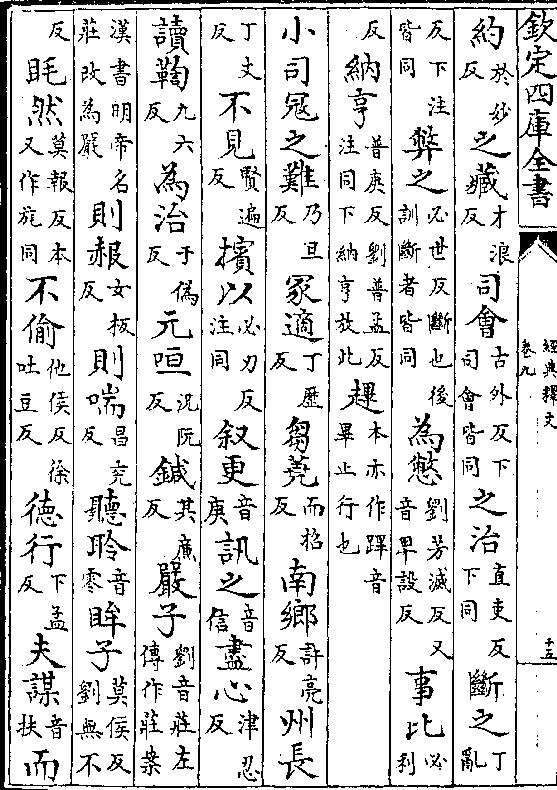 欽定四庫全書 經典釋文 卷九 十五
約於妙反之藏才浪反司會古外反下司會皆同之治直吏反下同斷之丁亂
反下注皆同弊之必世反斷也後訓斷者皆同為憋劉芳滅反又音卑設反事比必利
反納亨普庚反劉普孟反注同下納亨放此䟆本亦作蹕音畢止行也
小司冦之難乃旦反冢適丁歷反芻蕘而招反南鄉許亮反州長
丁丈反不見賢遍反擯以必刃反注同叙更音庚訊之音信盡心津忍反
讀鞫九六反為治于偽反元咺况阮反鍼其廉反嚴子劉音莊左傳作莊案
漢書明帝名莊改為嚴則赧女板反則喘昌兖反聽聆音零眸子莫侯反劉無不
反眊然莫報反本又作旄同不偷他侯反徐吐豆反徳行下孟反夫謀音扶而